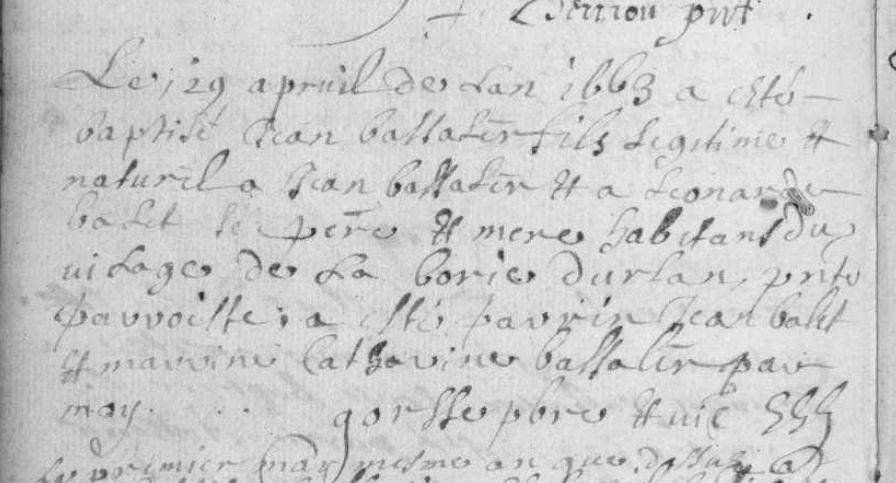 prnt .
Le 29 apvril de Lan 1663 a esté
baptisé Jean bassaler fils Legitime et
naturel a Jean bassaler et a Leonarde
balet ses pere et mere habitant du
vilage de La borie durlan, pnte
parroisse, a esté parrin Jean balet
et marrine Catharine bassaler par
moy. gorsse pbre et vic
Le premier may mesme an que dessus a